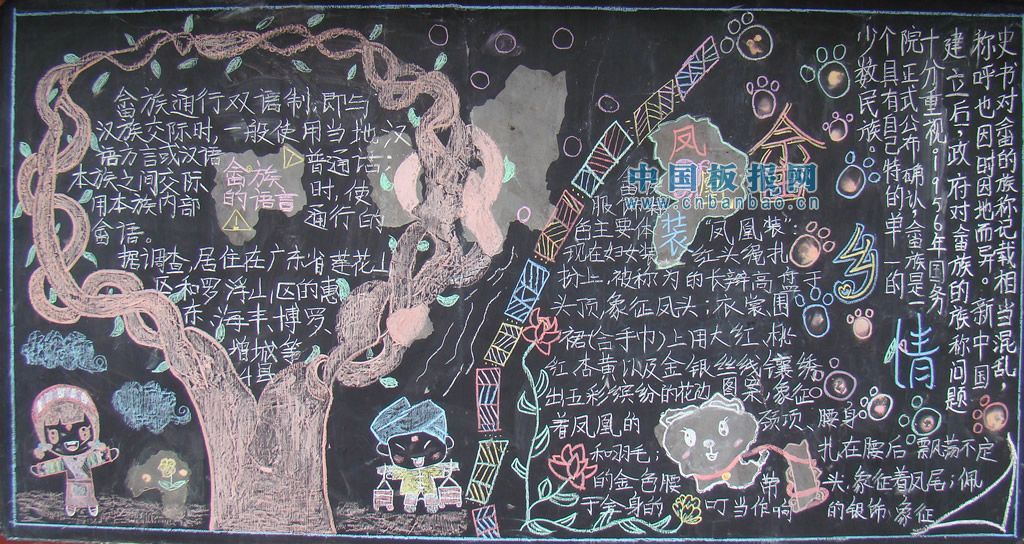 畲族通行双语制,即与
汉族交际时,一般使用当地汉
语方言或汉语普通话;
本族之间交际时,使
用本族内部通行的
畲语。
据调查,居住在广东省莲花山
区和罗浮山区的惠
东、海丰、博罗
增城等
4县
畲族
的语言
凤
装
畲乡情
中国板报网
www.cnbanbao.cn
主要
凤凰装:
红头绳扎
的长辫高盘于
头顶,象征凤头;衣裳、围
裙(合手巾)上用大红、桃
红、杏黄以及金银丝线镶绣
出五彩缤纷的花边图案,象征
着凤凰的颈项、腰身
和羽毛;扎在腰后飘荡不定
的金色腰带头,象征着凤尾;佩
于全身的叮当作响的银饰象征
史书对畲的族称记载相当混乱,
称呼也因时因地而异。新中国
建立后,政府对畲族的族称问题
十分重视,1956年国务
院正式公布确认,畲族是一
个具有自己特的单一的
少数民族。